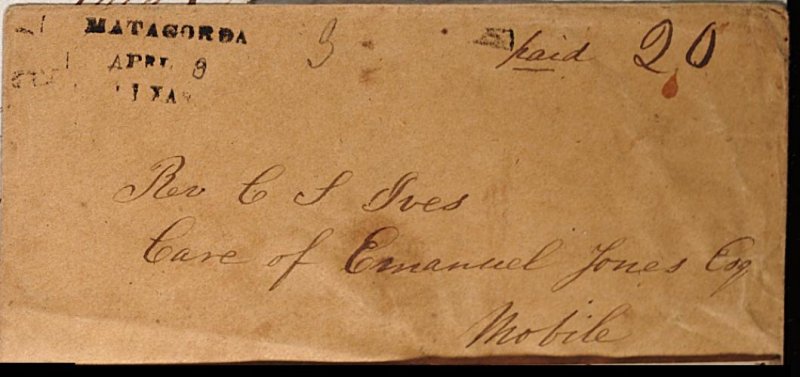 MATAGORDA
APRL 8
TEXAS
paid 20
Rev C S Ives
Care of Emanuel Jones Esq
Mobile